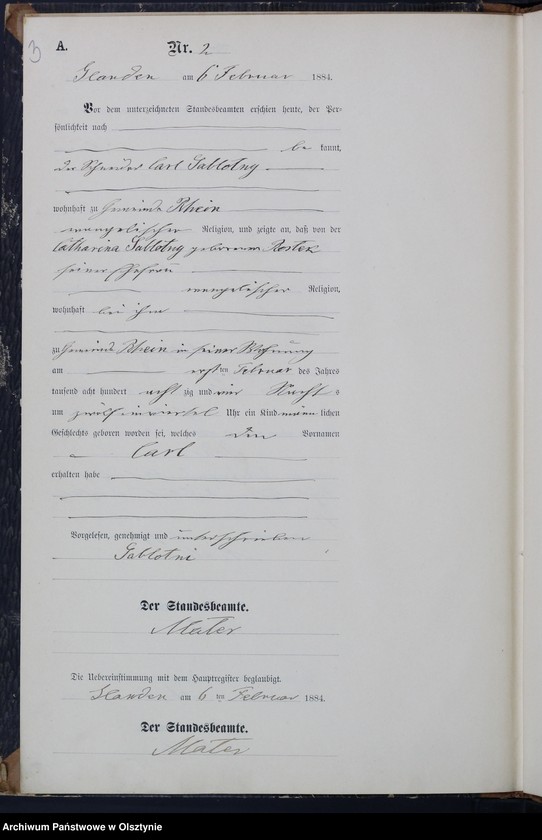 3
A.
Nr. 2
Glanden am 6 Februar 1884.
Vor dem unterzeichneten Standesbeamten erschien heute, der Per-
sönlichkeit nach
be kannt,
der Schneider Carl Sablotny
wohnhaft zu Gemeinde Rhein
evangelischer Religion, und zeigte an, daß von der
Catharina Sablotny geborenen Rostek
seiner Ehefrau
evangelischer Religion,
wohnhaft bei ihm
zu Gemeinde Rhein in seiner Wohnung
am ersten Februar des Jahres
tausend acht hundert acht zig und vier Nachts
um zwölf einviertel Uhr ein Kind männlichen
Geschlechts geboren worden sei, welches den Vornamen
Carl
erhalten habe
Vorgelesen, genehmigt und unterschrieben
Sablotni
Der Standesbeamte.
Mater
Die Uebereinstimmung mit dem Hauptregister beglaubigt.
Glanden am 6 ten Februar 1884.
Der Standesbeamte.
Mater
Archiwum Państwowe w Olsztynie